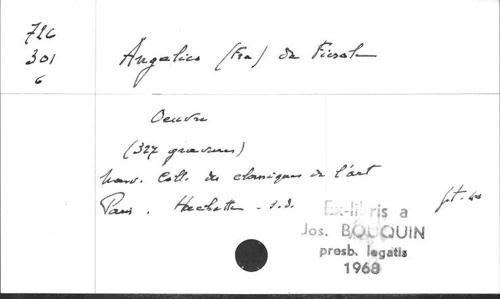 726
301
6
Angelico (Fra) da Fiesole
Oeuvre
(327 gravures)
Nouv. Coll. des classiques de l'art
Paris. Hachette - s.d.
Ex-libris a
Jos. BOUQUIN
presb. legatis
1968